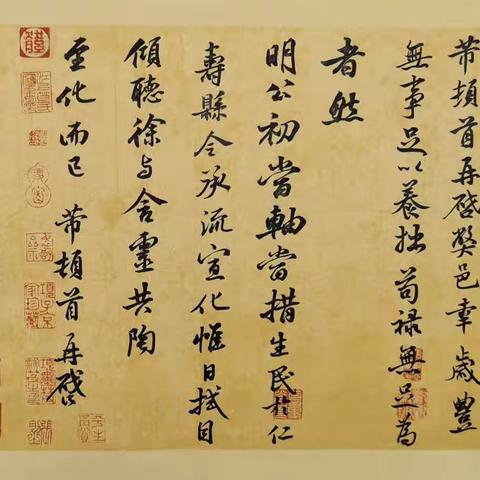 芾頓首再啓弊邑幸歲豐
無事足以養拙苟祿無足為
者然
明公初當軸當措生民於仁
壽縣令承流宣化惟日拭目
傾聽徐与含靈共陶
至化而已 芾頓首再啓
項子京家珍藏